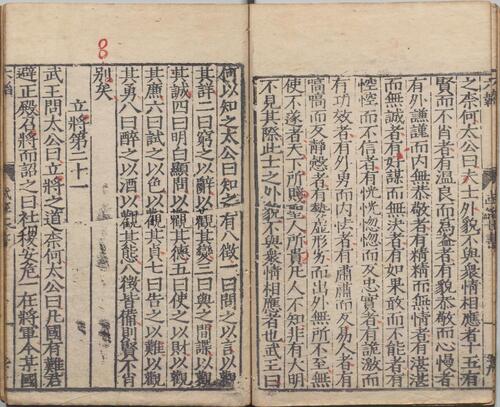 之奈何太公曰夫士外貌不與衆情相應者十五有
賢而不肖者有溫良而爲盜者有貌恭敬而心慢者
有外謹謹而內無恭敬者有精精而無情者有湛湛
而無誠者有好謀而無決者有如果敢而不能者有
悾悾而不信者有恍恍惚惚而反忠實者有詭激而
有功效者有外勇而內怯者有肅肅而反易人者有
嗃嗃而反靜慤者有勢虛形劣而出外無所不至無
使不遂者天下所賤聖人所貴凡人不知非有大明
不見其際此士之外貌不與衆情相應者也武王曰
何以知之太公曰知之有八徵一曰問之以言以觀
其詳二曰窮之以辭以觀其變三曰與之間諜以觀
其誠四曰明白顯問以觀其德五曰使之以財以觀
其廉六曰試之以色以觀其貞七曰告之以難以觀
其勇八曰醉之以酒以觀其態八徵皆備則賢不肖
別矣
8
立將第二十一
武王問太公曰立將之道奈何太公曰凡國有難君
避正殿召將而詔之曰社稷安危一在將軍今某國